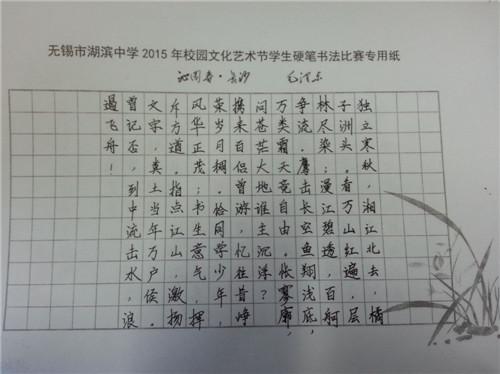 无锡市湖滨中学2015年校园文化艺术节学生硬笔书法比赛专用纸
沁园春·长沙 毛泽东
独立寒秋,湘江北去,橘
子洲头。看万山红遍,层
林尽染;漫江碧透,百舸
争流。鹰击长空,鱼翔浅底,
万类霜天竞自由。怅寥廓,
问苍茫大地谁主沉浮?
携来百侣曾游,忆往昔峥
荣岁月稠。恰同学少年,
风华正茂;书生意气,挥
斥方遒。指点江山,激扬
文字,粪土当年万户侯。
曾记否,到中流击水,浪
遏飞舟!